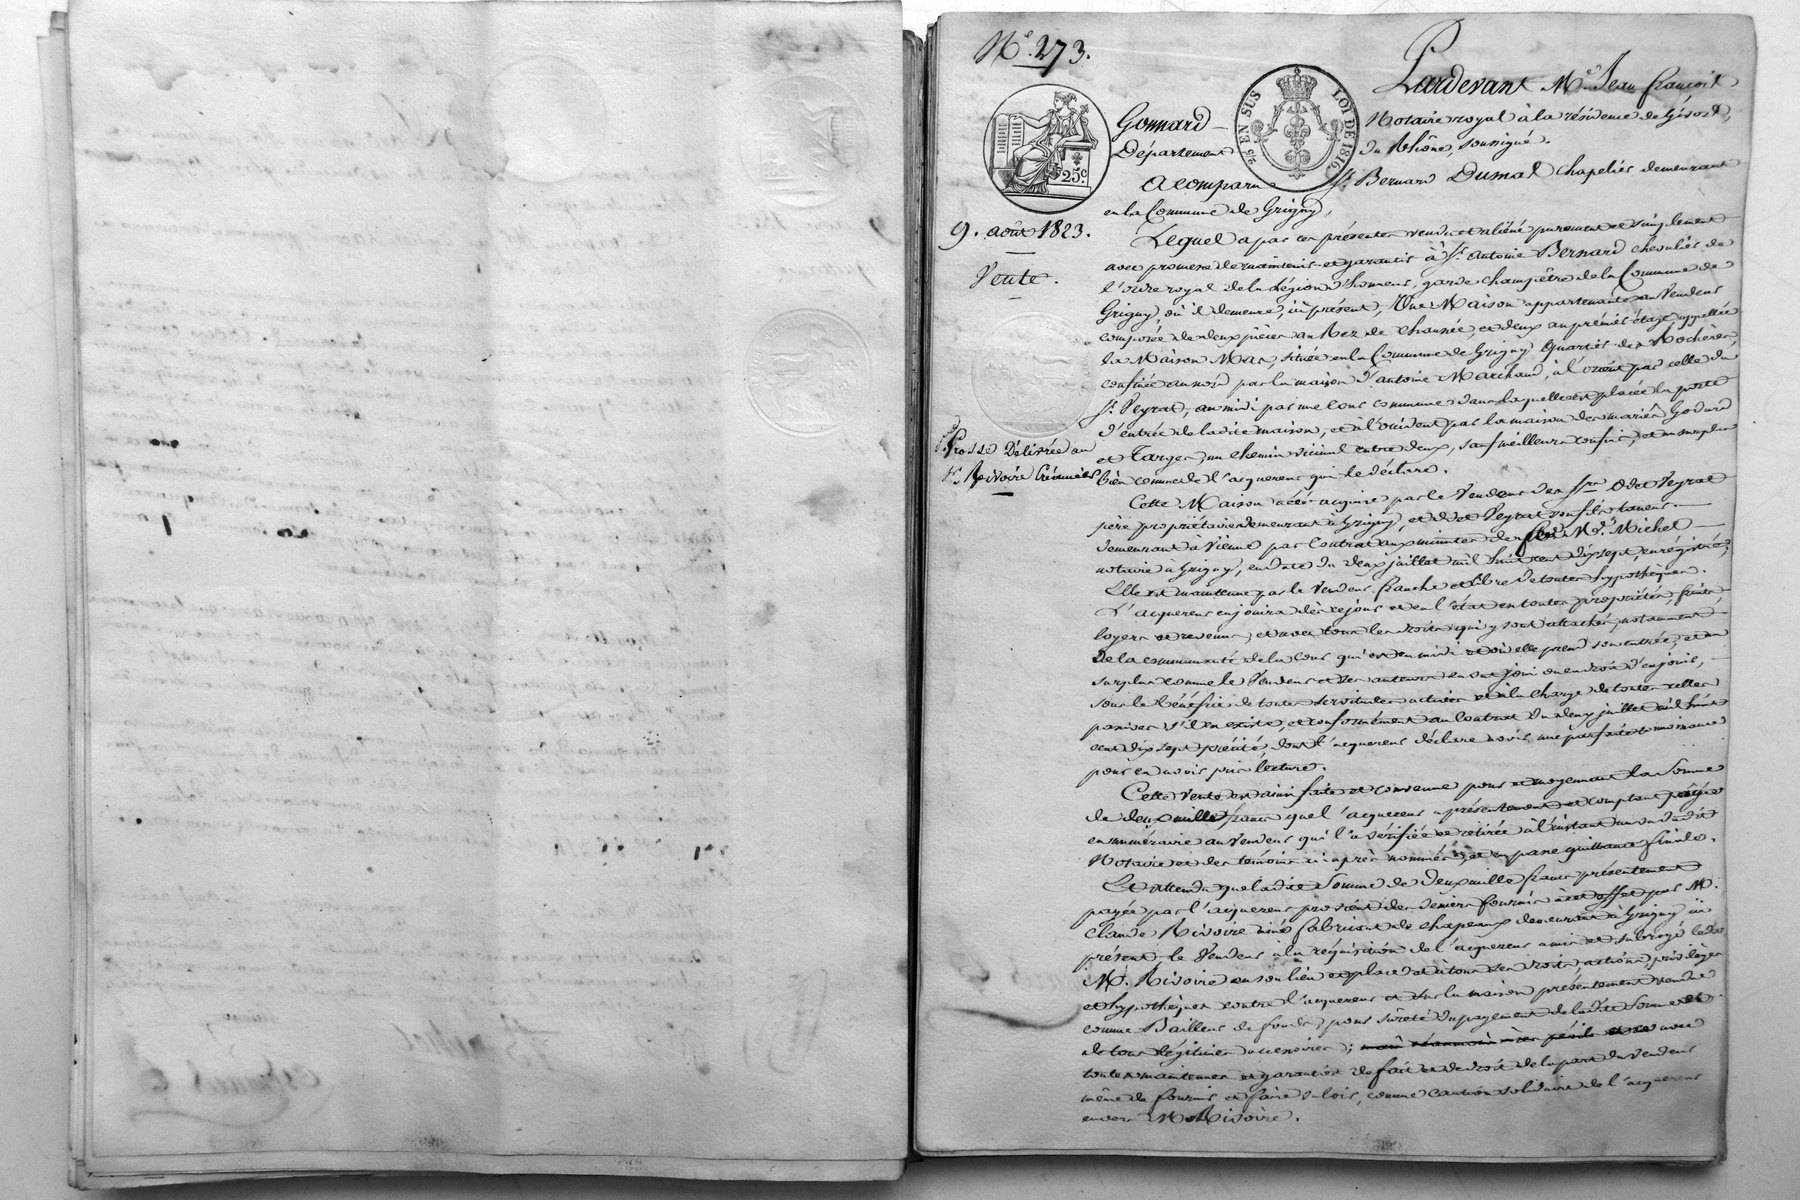 N.° 273.
Pardevant M.e Jean françois
Gonnard
Notaire royal à la résidence de Givord,
25 EN SUS
LOI DE 1816
25 c
Département
du Rhône, soussigné.
A comparu
Sr. Bernard Dumas Chapelier demeurant
en la Commune de Grigny,
9. août 1823.
Vente.
Lequel a par ces présentes vendu et aliéné purement et simplement
avec promesse de maintenir et garantir à Sr. Antoine Bernard chevalier de
l'ordre royal de la Légion d'honneur, garde champêtre de la Commune de
Grigny, où il demeure, ici présent, Une Maison appartenante au Vendeur
composée de deux pièces au Rez de Chaussée et deux au premier étage, appellée
la Maison Mas, située en la Commune de Grigny Quartier des Rochères,
confinée au nord par la maison d'antoine Marchand, à l'orient par celle du
Sr. Peyrat, au midi par une Cour commune dans laquelle est placée la porte
d'entrée de ladite maison, et à l'occident par la maison des mariés Godard
et Targes, un chemin vicinal entre deux, sauf meilleurs confins, et au surplus
bien connue de l'acquereur qui le déclare.
Grosse Délivrée au
Sr. Rivoire Créancier
Cette Maison a été acquise par le Vendeur des Srs. Odet Peyrat
père propriétaire demeurant à Grigny, et Odet Peyrat son fils taneur
demeurant à Vienne par Contrat aux minutes de feu M.e Michel
notaire à Grigny, en date du deux juillet mil huit cent dix sept, enrégistré;
Elle est maintenue par le Vendeur franche et libre de toutes hypothèques.
L'acquereur en jouira dès ce jour et en l'état en toutes propriétés, fruits,
loyers et revenus, et avec tous les droits qui y sont attachés, notamment
de la communauté de la Cour qui est au midi et où elle prend son entrée, et au
surplus comme le Vendeur et ses auteurs en ont joui ou eu droit d'en jouir,
sous le Bénéfice de toutes servitudes actives et à la charge de toutes celles
passives s'il en existe, et conformément au Contrat du deux juillet mil huit
cent dix sept précité, dont l'acquereur déclare avoir une parfaite connoissance
pour en avoir pris lecture.
Cette Vente est ainsi faite et convenue pour et moyennant la Somme
de deux mille francs que l'acquereur a présentement et comptant payée
en numéraire au Vendeur qui l'a vérifiée et retirée à l'instant au vu dudit
Notaire et des témoins ci après nommés, et en passe quittance finale.
Et attendu que ladite Somme de Deux mille francs présentement
payée par l'acquereur provient des deniers fournis à cet effet par M.
Claude Rivoire ainé fabricant de chapeaux demeurant à Grigny, ici
présent, le Vendeur à la réquisition de l'acquereur a mis et subrogé ledit
M. Rivoire en son lieu et place et à tous ses droits, actions, privilèges
et hypothèques contre l'acquereur et sur la maison présentement vendue
comme Bailleur de fonds, pour sûreté du payement de ladite Somme et
de tous légitimes accessoires; mais néanmoins à ses périls et avec
toutes maintenues et garanties de fait et de droit de la part du Vendeur
même de fournir et faire valoir, comme caution solidaire de l'acquereur
envers M. Rivoire.